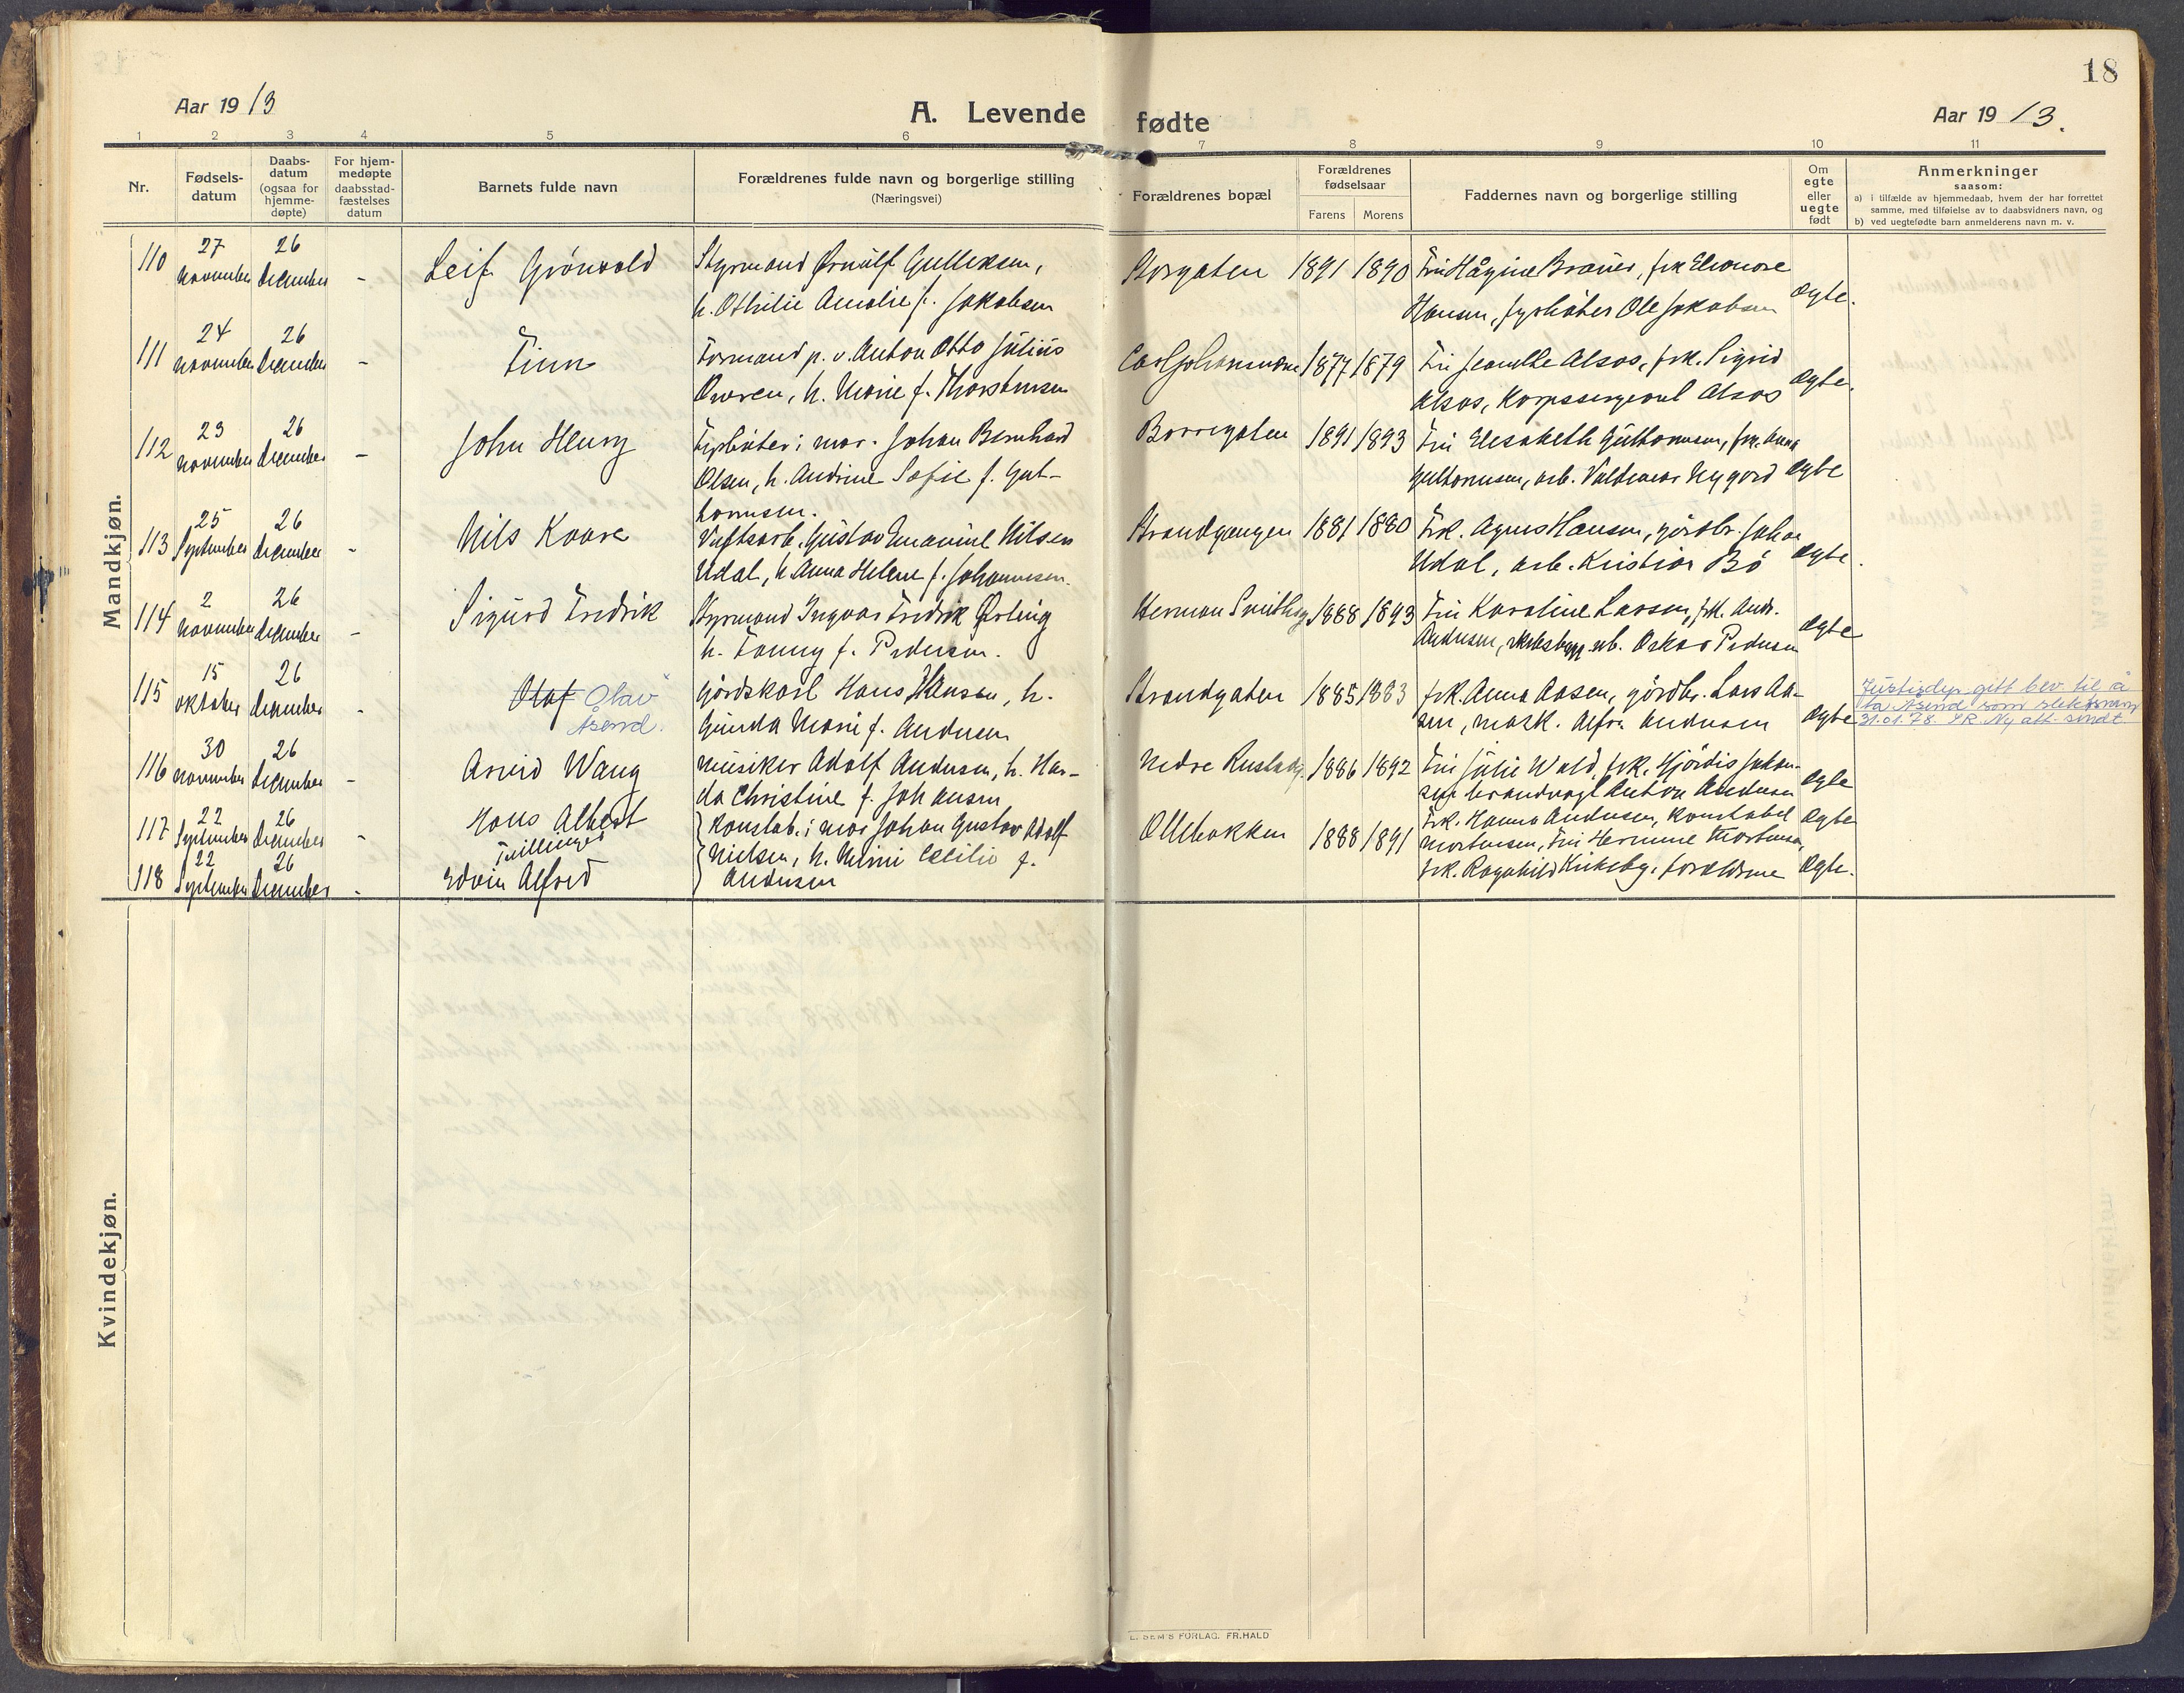 18
Aar 19 13
A. Levende fødte
Aar 19 13.
1 2 3 4 5 6 7 8 9 10 11
Nr.
Fødsels-
datum
Daabs-
datum
(ogsaa for
hjemme-
døpte)
For hjem-
medøpte
daabsstad-
fæstelses
datum
Barnets fulde navn
Forældrenes fulde navn og borgerlige stilling
(Næringsvei)
Forældrenes bopæl
Forældrenes
fødselsaar
Farens Morens
Faddernes navn og borgerlige stilling
Om
egte
eller
uegte
født
Anmerkninger
saasom:
a) i tilfælde av hjemmedaab, hvem der har forrettet
samme, med tilføielse av to daabsvidners navn, og
b) ved uegtefødte barn anmelderens navn m. v.
Mandkjøn.
110 27 november 26 december - Leif Grönvold
Styrmand Ørnulf Gulliksen,
h. Othilie Amalie f. Jakobsen
Storgaten 1891 1890
Fru Hågine Brauer, frk Eleonore
Hansen, fyrbøter Ole Jakobsen
Ægte.
111 24 november 26 december - Finn
Formand p. v. Anton Otto Julius
Ovren, h. Marie f. Thorstensen
Carljohansværn 1877 1879
Fru Jeanette Alsos, frk. Sigrid
Alsos, Korpssergeant Alsos
Ægte.
112 23 november 26 december - John Henry
Fyrbøter i mar. Johan Bernhard
Olsen, h. Andrine Sofie f. Gut-
tormsen.
Borregaten 1891 1893
Fru Elisabeth Guttormsen, frk. Anna
Guttormsen, arb. Valdemar Nygard
Ægte
113 25 September 26 december - Nils Kaare
Verftsarb. Gustav Emanuel Nilsen
Udal, h. Anna Helene f. Johannesen.
Strandgangen 1881 1880
Frk. Agnes Hansen, gördbr. Johan
Udal, arb. Kristian Bö
Ægte.
114 2 november 26 december - Sigurd Fredrik
Styrmand Ingvar Fredrik Ørling
h. Fanny f. Pedersen.
Herman Smithsg 1888 1893
Fru Karoline Larsen, frk. Andr.
Andersen, arb. Oskar Pedersen
Ægte
115 15 oktober 26 december - Olaf Olav
Åsend.
Gördskarl Hans Hansen, h.
Gunda Marie f. Andersen
Strandgaten 1885 1883
frk. Anna Aasen, gördbr. Lars Aa-
sen, mask. Alfr. Andersen
Ægte
Justisdep. gitt bev. til å
ta Åsend som slektsnavn
31.01.78. Ny att. sendt
116 30 november 26 december - Arvid Wang
Musiker Adolf Andersen, h. Han-
da Christine f. Johansen
Nedre Rustadg. 1886 1892
Fru Julie Wold, frk. Hjördis Johan-
sen brandvagt Anton Andersen
Ægte
117 22 September 26 december - Hans Albert
Tvillinger
118 22 September 26 december - Edvin Alfred
Konstab. i mar Johan Gustav Adolf
Nielsen, h. Mimi Cecilie f.
Andersen
Ollebakken 1888 1891
Frk. Hanna Andersen, Konstabel
Mortensen, Fru Hermine Mortensen,
frk. Ragnhild Kirkeby, forældrene
Ægte
Ægte.
Kvindekjøn.
E. SEM'S FORLAG. FR.HALD